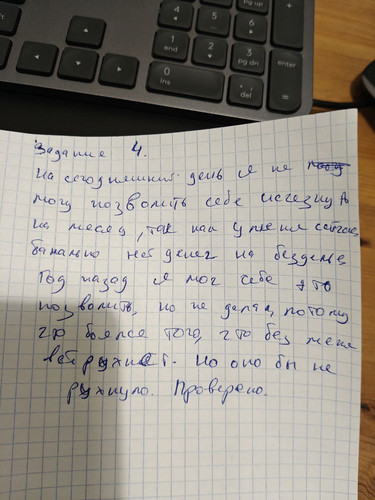 4
5
6
1
end
2
3
pg dn
0
ins
.
del
enter
=
+
pg up
Задание 4.
На сегодняшний день я не
могу позволить себе исчезнуть
на месяц, так как у меня сейчас
банально нет денег на безделье
Год назад я мог себе это
позволить, но не делал, потому
что боялся того, что без меня
всё рухнет. Но оно бы не
рухнуло. Проверено.